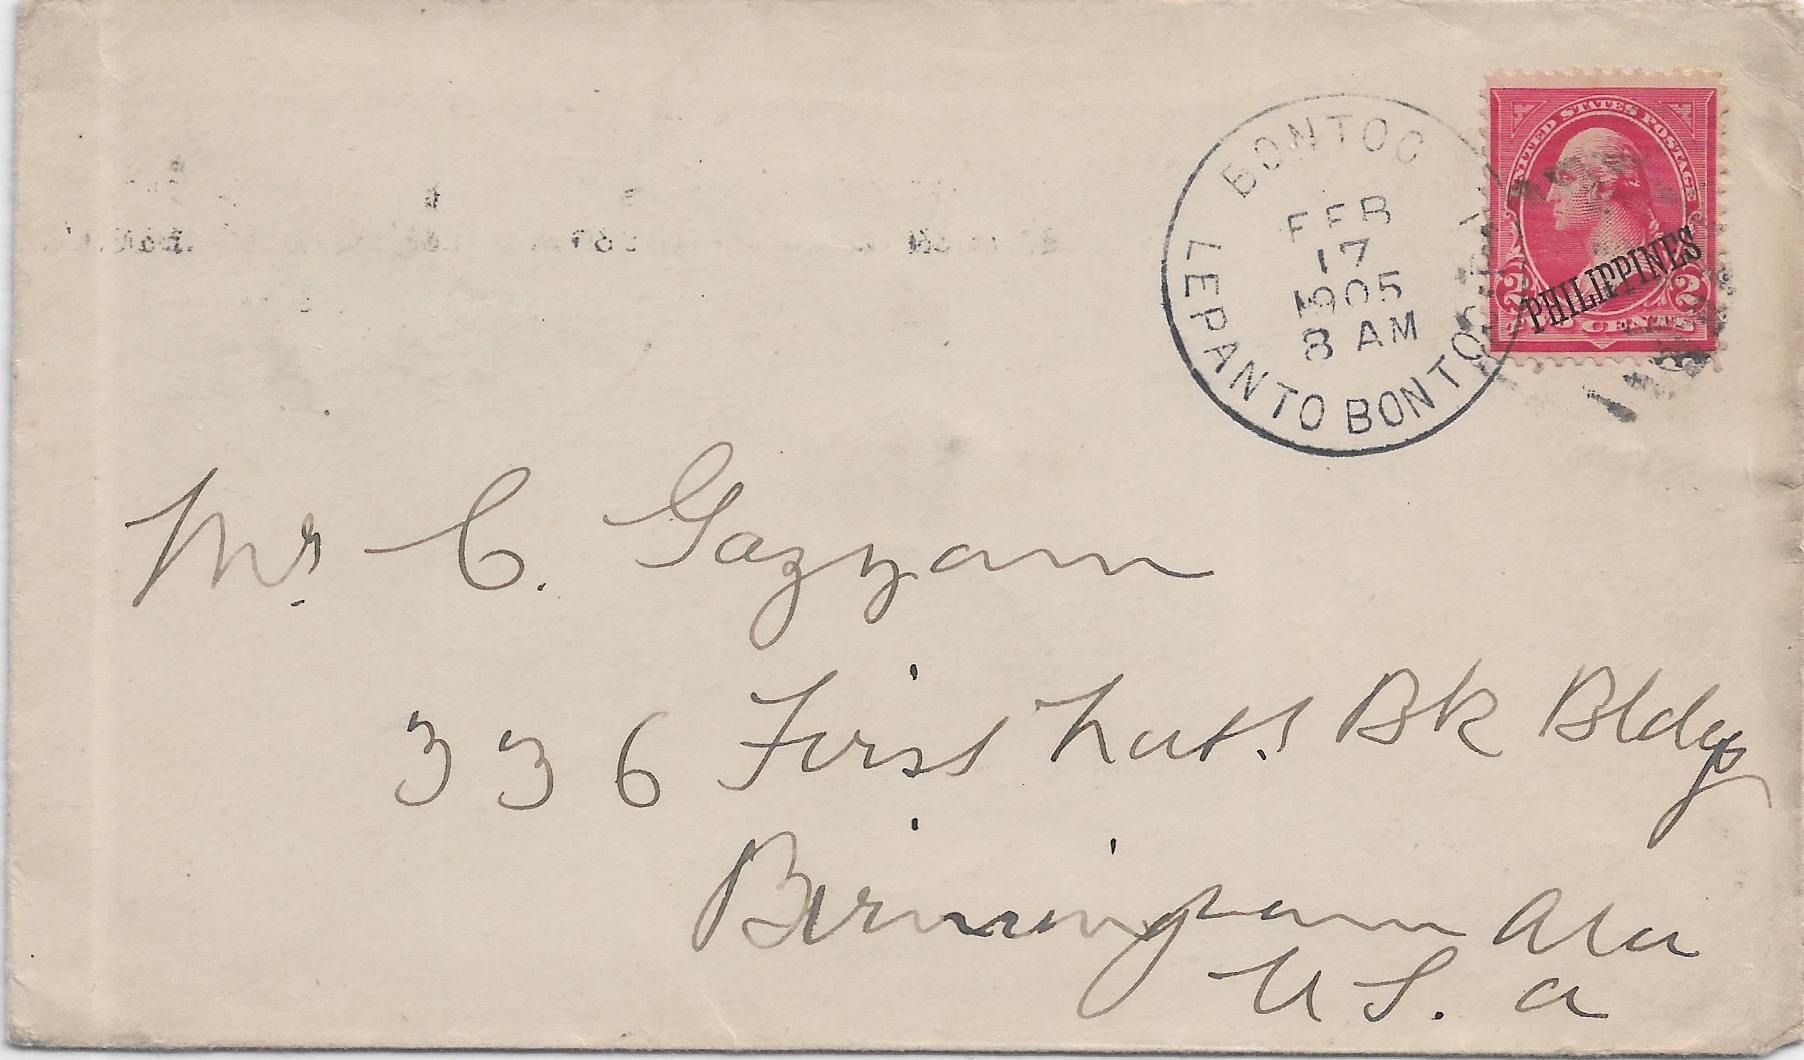 BONTOC
LEPANTO BONTOC
FEB
17
1905
8 AM
UNITED STATES POSTAGE
PHILIPPINES
2 2
TWO CENTS
Mr C. Gazzam
336 First Natl Bk Bldg
Birmingham Ala
U S. A